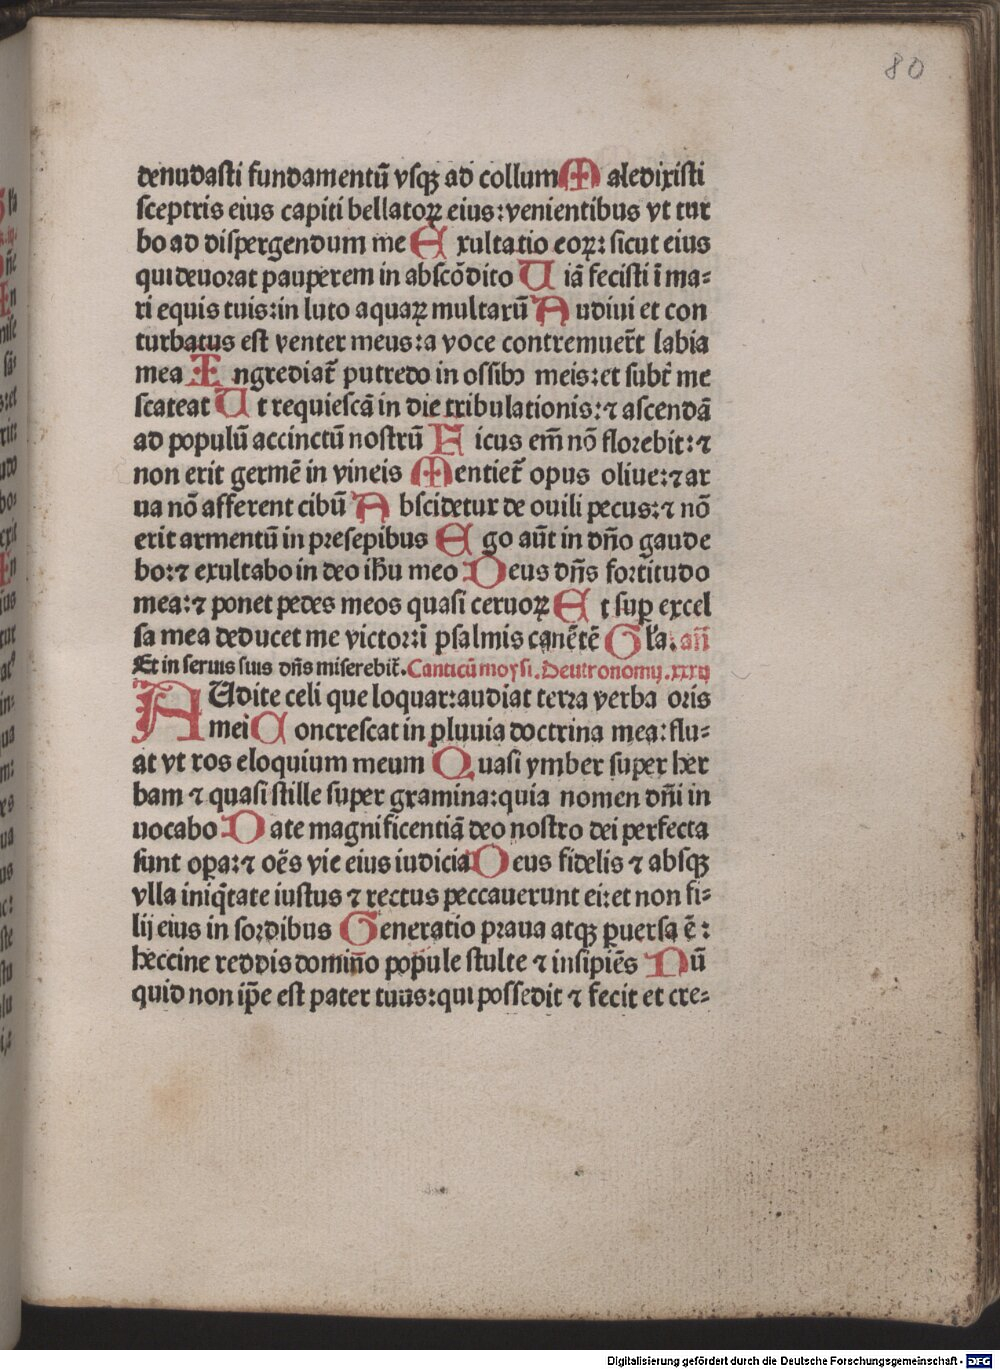 80
denudasti fundamentū vsqꝫ ad collum Maledixisti
sceptris eius capiti bellatoꝝ eius:venientibus vt tur
bo ad dispergendum me Exultatio eoꝝ: sicut eius
qui deuorat pauperem in abscōdito Uiā fecisti ī ma⸗
ri equis tuis:in luto aquaꝝ multarū Audiui et con
turbatus est venter meus:a voce contremuer̄t labia
mea Ingrediat᷑ putredo in ossibꝫ meis:et subt᷑ me
scateat Ut requiescā in die tribulationis:⁊ ascendā
ad populū accinctū nostrū Ficus em̄ nō florebit:⁊
non erit germē in vineis Mentiet᷑ opus oliue:⁊ ar
ua nō afferent cibū Abscidetur de ouili pecus:⁊ nō
erit armentū in presepibus Ego aūt in dn̄o gaude
bo:⁊ exultabo in deo ihū meo Deus dn̄s fortitudo
mea:⁊ ponet pedes meos quasi ceruoꝝ Et suꝑ excel
sa mea deducet me victor:ī psalmis canētē Gła. an̄
Et in seruis suis dn̄s miserebit᷑. Canticū moysi. Deutronomij. xxxij
AUdite celi que loquar:audiat terra verba oris
mei Concrescat in pluuia doctrina mea:flu⸗
at vt ros eloquium meum Quasi ymber super her
bam ⁊ quasi stille super gramina:quia nomen dn̄i in
uocabo Date magnificentiā deo nostro dei perfecta
sunt oꝑa:⁊ oēs vie eius iudicia Deus fidelis ⁊ absqꝫ
vlla iniq̄tate iustus ⁊ rectus peccauerunt ei:et non fi⸗
lij eius in sordibus Generatio praua atqꝫ ꝑuersa ē:
heccine reddis domino popule stulte ⁊ insipiēs Nū
quid non ip̄e est pater tuus:qui possedit ⁊ fecit et cre⸗
Digitalisierung gefördert durch die Deutsche Forschungsgemeinschaft - DFG